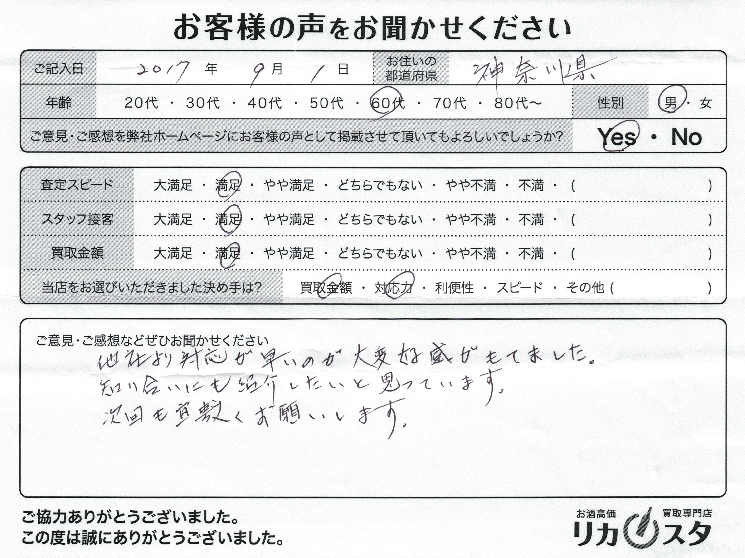 お客様の声をお聞かせください
ご記入日 2017 年 9 月 1 日 お住いの都道府県 神奈川県
年齢 20代 ・ 30代 ・ 40代 ・ 50代 ・ 60代 ・ 70代 ・ 80代〜 性別 男 ・ 女
ご意見・ご感想を弊社ホームページにお客様の声として掲載させて頂いてもよろしいでしょうか? Yes ・ No
査定スピード 大満足 ・ 満足 ・ やや満足 ・ どちらでもない ・ やや不満 ・ 不満 ・ ( )
スタッフ接客 大満足 ・ 満足 ・ やや満足 ・ どちらでもない ・ やや不満 ・ 不満 ・ ( )
買取金額 大満足 ・ 満足 ・ やや満足 ・ どちらでもない ・ やや不満 ・ 不満 ・ ( )
当店をお選びいただきました決め手は? 買取金額 ・ 対応力 ・ 利便性 ・ スピード ・ その他 ( )
ご意見・ご感想などぜひお聞かせください
他社より対応が早いのが大変好感がもてました。
知り合いにも紹介したいと思っています。
次回も宜敷くお願いします。
ご協力ありがとうございました。
この度は誠にありがとうございました。
お酒高価 買取専門店
リカスタ